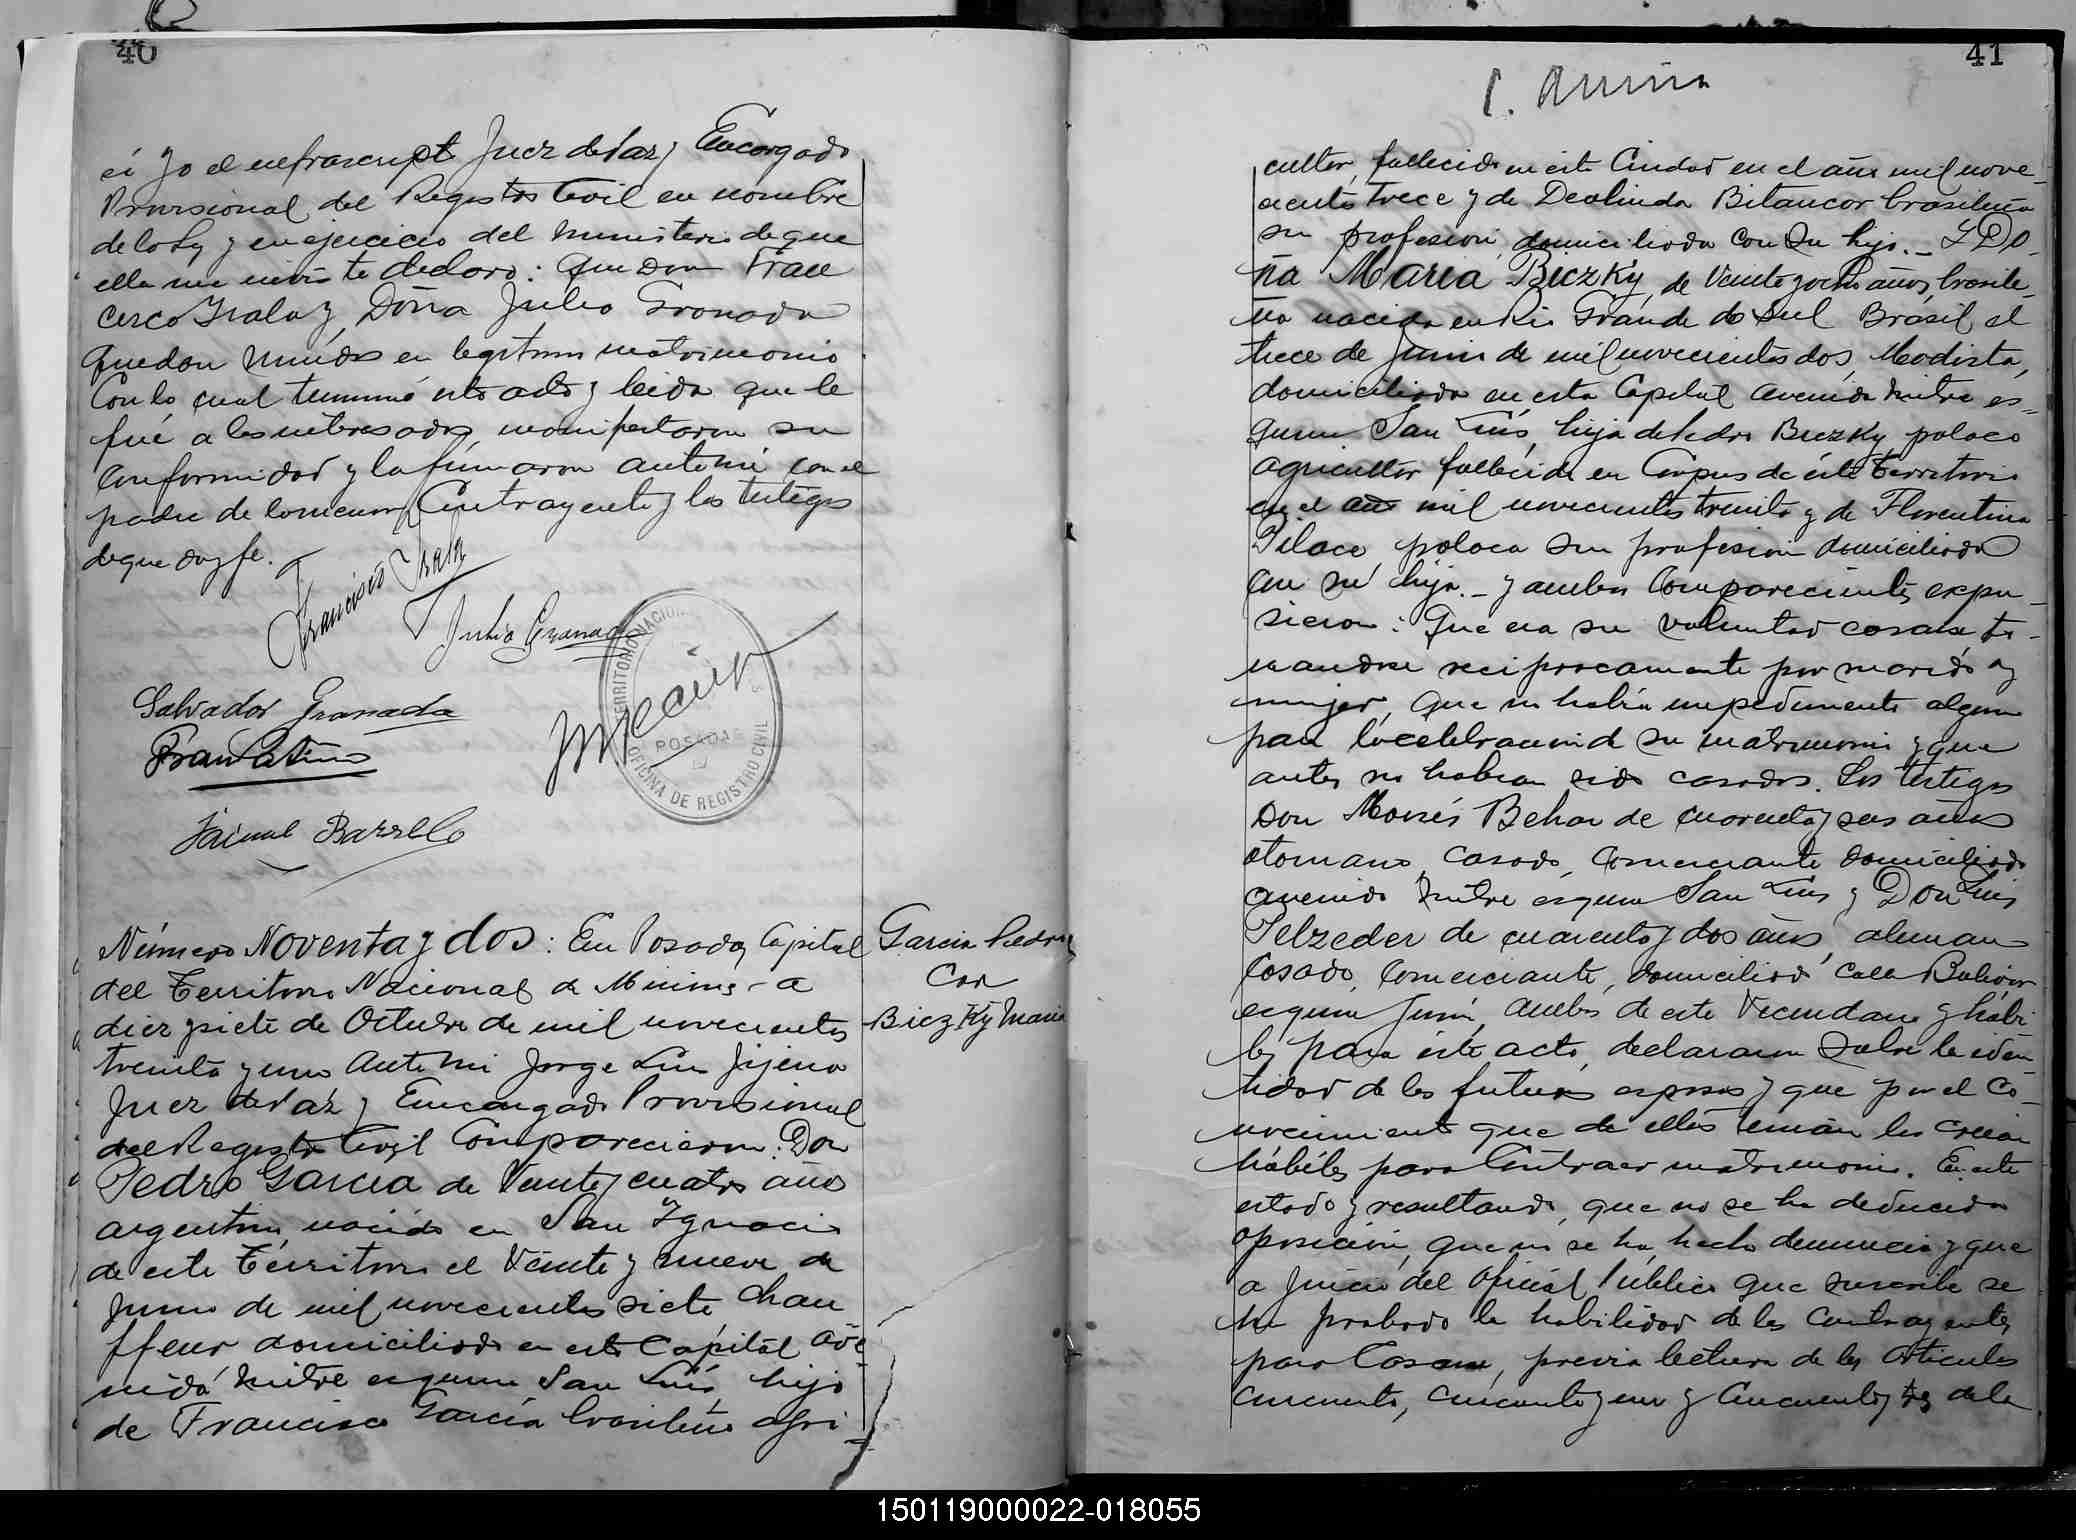 40
ci yo el infrascripto Juez de Paz y Encargado
Provisional del Registro Civil en nombre
de la Ley y en ejercicio del ministerio de que
ella me inviste declaro: Que Don Fran
cisco Irala y Doña Julia Granada
quedan unidos en legitimo matrimonio
Con lo cual terminó este acto y leida que le
fué a los interesados manifestaron su
conformidad y la firmaron ante mi con el
padre de la menor Contrayente y los testigos
de que doy fe.
Francisco Irala
Julia Granada
Salvador Granada
Jaime Barrelo
TERRITORIO NACIONAL
POSADAS
OFICINA DE REGISTRO CIVIL
Número Noventa y dos: En Posadas, Capital
del Territorio Nacional de Misiones a
diez y siete de Octubre de mil novecientos
treinta y uno Ante Mi Jorge Luis Jijena
Juez de Paz y Encargado Provisional
del Registro Civil Comparecieron: Don
Pedro Garcia de Veinte y cuatro años
argentino, nacido en San Ygnacio
de este Territorio el Veinte y nueve de
Junio de mil novecientos siete, Chau
ffeur domiciliado en esta Capital Ave
nida Mitre esquina San Luis, hijo
de Francisco Garcia brasileño agri-
Garcia Pedro
Con
Biezky Maria
41
cultor, fallecido en esta Ciudad en el año mil nove-
cientos trece y de Deolinda Bitancor brasileña
sin profesion, domiciliada con su hijo.- Y Do-
ña Maria Biezky, de Veinte y ocho años, brasile-
ña nacida en Rio Grande do Sul Brasil el
trece de Junio de mil novecientos dos, Modista,
domiciliada en esta Capital Avenida Mitre es-
quina San Luis, hija de Pedro Biezky polaco
agricultor fallecido en Corpus de éste Territorio
en el año mil novecientos treinta y de Florentina
Pilace, polaca sin profesion domiciliada
con su hija.- y ambos Comparecientes expu-
sieron: Que era su voluntad casarse to-
mandose reciprocamente por marido y
mujer, que no habia impedimento alguno
para la celebracion de su matrimonio y que
antes no habian sido casados. Los testigos
Don Moisés Behar de cuarenta y seis años
otomano, casado, Comerciante domiciliado
avenida Mitre esquina San Luis y Don Luis
Pelzeder de cuarenta y dos años, aleman
Casado, Comerciante, domiciliado calle Bolivar
esquina Junin, ambos de este Vecindario y hábi-
les para éste acto, declararon Sobre la iden
tidad de los futuros esposos y que por el co-
nocimiento que de ellos tenian los creian
hábiles para Contraer matrimonio. En este
estado y resultando, que no se ha deducido
oposicion, que no se ha hecho denuncia y que
a juicio del Oficial Público que suscribe se
ha probado la habilidad de los Contrayentes
para Casarse, previa lectura de los Articulos
cincuenta, cincuenta y uno y Cincuenta y tres de la
150119000022-018055